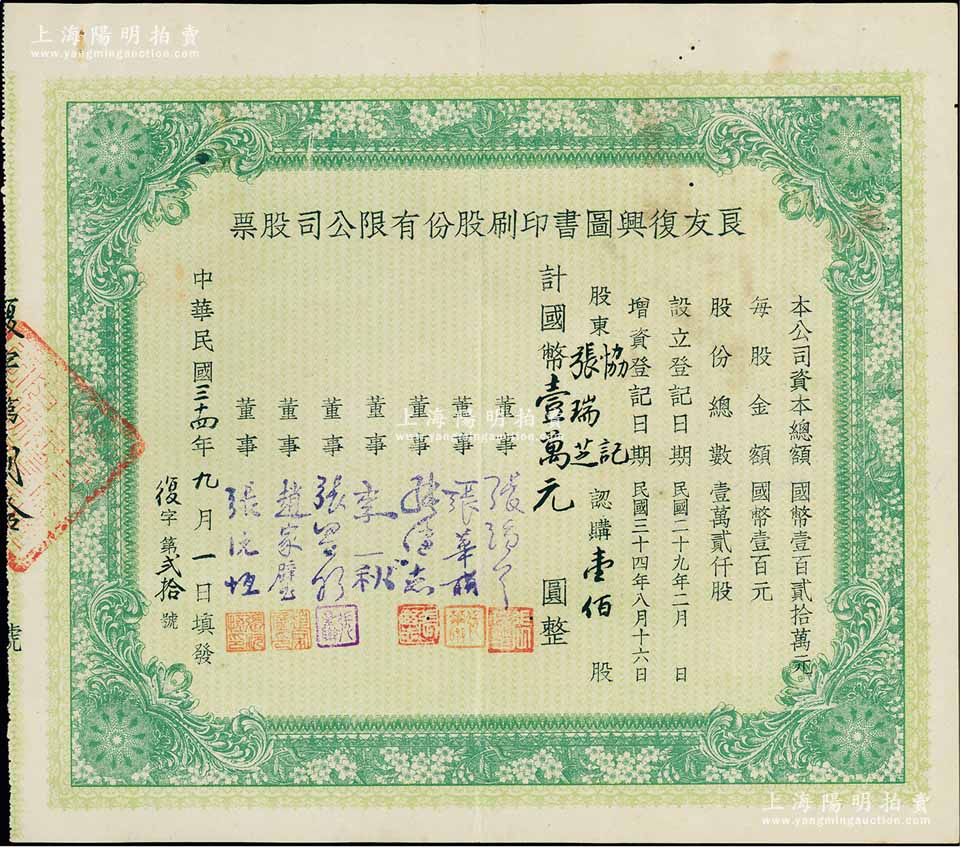 上海陽明拍賣
www.yangmingauction.com
良友復興圖書印刷股份有限公司股票
本公司資本總額 國幣壹百貳拾萬元
每股金額 國幣壹百元
股份總數 壹萬貳仟股
設立登記日期 民國二十九年二月 日
增資登記日期 民國三十四年八月十六日
股東 協記 張瑞芝 認購壹佰股
計國幣壹萬元 圓整
董事
董事 張華
董事
董事 李一
董事 張
董事 趙家璧
董事 張沅恒
中華民國三十四年九月一日填發
復字第貳拾號
復字第 拾 號
上海陽明拍賣
www.yangmingauction.com
上海陽明拍賣
www.yangmingauction.com